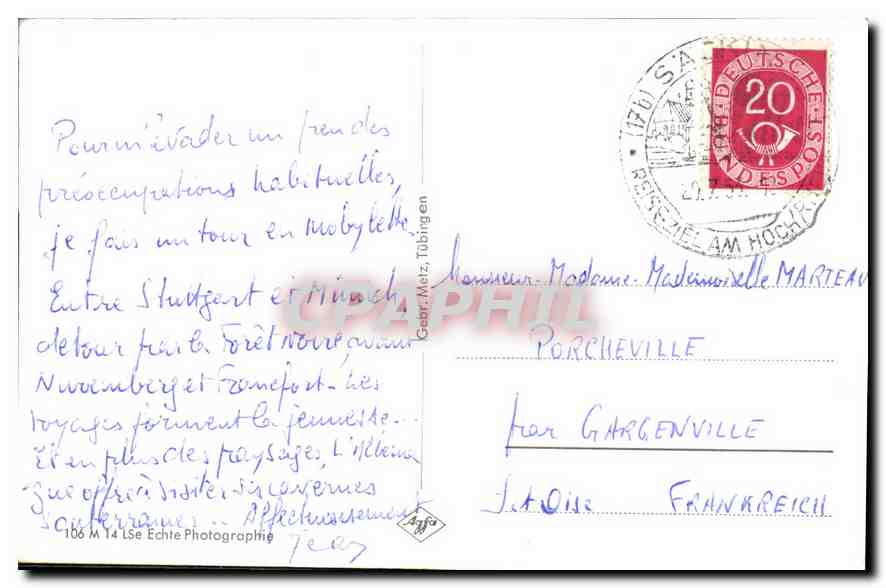 Pour m'évader un peu des
préoccupations habituelles,
je fais un tour en Mobylette.
Entre Stuttgart et Münich,
détour par la Forêt Noire, avant
Nuremberg et Francfort. Les
voyages forment la jeunesse...
Et en plus des paysages, L'Allema
gne offre à visiter ses cavernes
souterraines... Affectueusement
Jean
106 M 14 LSe Echte Photographie
Agfa
Gebr. Metz, Tübingen
CPAPHIL
(17b) SÄCKI
REISEZIEL AM HOCHR
DEUTSCHE BUNDESPOST
20
Monsieur-Madame-Mademoiselle MARTEAU
PORCHEVILLE
par GARGENVILLE
S. et Oise FRANKREICH